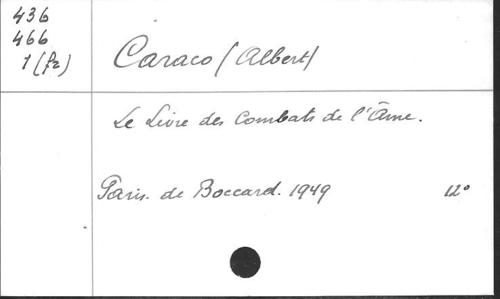 436
466
1 (fr)
Caraco (Albert)
Le Livre des Combats de l'Âme.
Paris. de Boccard. 1949 12°